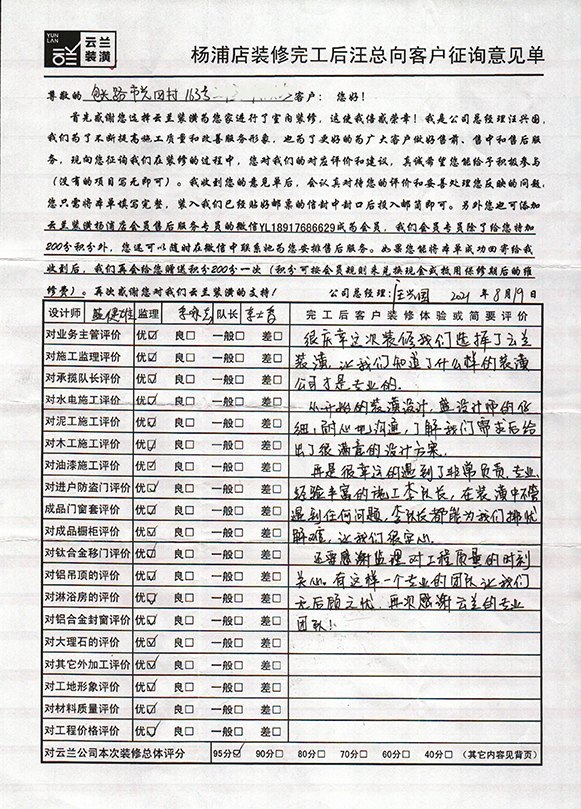 YUN LAN 云兰装潢
杨浦店装修完工后汪总向客户征询意见单
尊敬的 市光四村163号 客户： 您好！
首先感谢您选择云兰装潢为您家进行了室内装修，这使我倍感荣幸！我是公司总经理汪兴国，
我们为了不断提高施工质量和改善服务形象，也为了更好的为广大客户做好售前、售中和售后服
务，现向您征询我们在装修的过程中，您对我们的对应评价和建议，真诚希望您能给予积极参与
（没有的项目写无即可）。我收到您的意见单后，会认真对待您的评价和妥善处理您反映的问题，
您只需将本单填写完整，装入我们已经贴好邮票的信封中封口后投入邮筒即可。另外您也可添加
云兰装潢杨浦店会员售后服务专员的微信YL18917686629成为会员，我们会员专员除了给您特加
200分积分外，您还可以随时在微信中联系她为您安排售后服务。如果您能将本单成功回寄给我
收到后，我们再会给您赠送积分200分一次（积分可按会员规则来兑换现金或抵用保修期后的维
修费）。再次感谢您对我们云兰装潢的支持！ 公司总经理：汪兴国 2021年8月19日
设计师 监理 队长 完工后客户装修体验或简要评价
对业务主管评价 优☑ 良□ 一般□ 差□ 很庆幸这次装修我们选择了云兰
对施工监理评价 优☑ 良□ 一般□ 差□ 装潢，让我们知道了什么样的装潢
对承揽队长评价 优☑ 良□ 一般□ 差□ 公司才是专业的。
对水电施工评价 优☑ 良□ 一般□ 差□ 从开始的装潢设计，盛设计师的仔
对泥工施工评价 优☑ 良□ 一般□ 差□ 细，耐心地沟通，了解我们需求后给
对木工施工评价 优☑ 良□ 一般□ 差□ 出了很满意的设计方案。
对油漆施工评价 优☑ 良□ 一般□ 差□ 再是很幸运的遇到了非常负责、专业、
对进户防盗门评价 优☑ 良□ 一般□ 差□ 经验丰富的施工李队长，在装潢中不管
成品门窗套评价 优☑ 良□ 一般□ 差□ 遇到任何问题，李队长都能为我们排忧
对成品橱柜评价 优☑ 良□ 一般□ 差□ 解难，让我们很安心。
对钛合金移门评价 优☑ 良□ 一般□ 差□ 还要感谢监理对工程质量的时刻
对铝吊顶的评价 优☑ 良□ 一般□ 差□ 关心。有这样一个专业的团队让我们
对淋浴房的评价 优☑ 良□ 一般□ 差□ 无后顾之忧，再次感谢云兰的专业
对铝合金封窗评价 优☑ 良□ 一般□ 差□ 团队！
对大理石的评价 优☑ 良□ 一般□ 差□
对其它外加工评价 优☑ 良□ 一般□ 差□
对工地形象评价 优☑ 良□ 一般□ 差□
对材料质量评价 优☑ 良□ 一般□ 差□
对工程价格评价 优☑ 良□ 一般□ 差□
对云兰公司本次装修总体评分 95分☑ 90分□ 80分□ 70分□ 60分□ 40分□ （其它内容见背页）